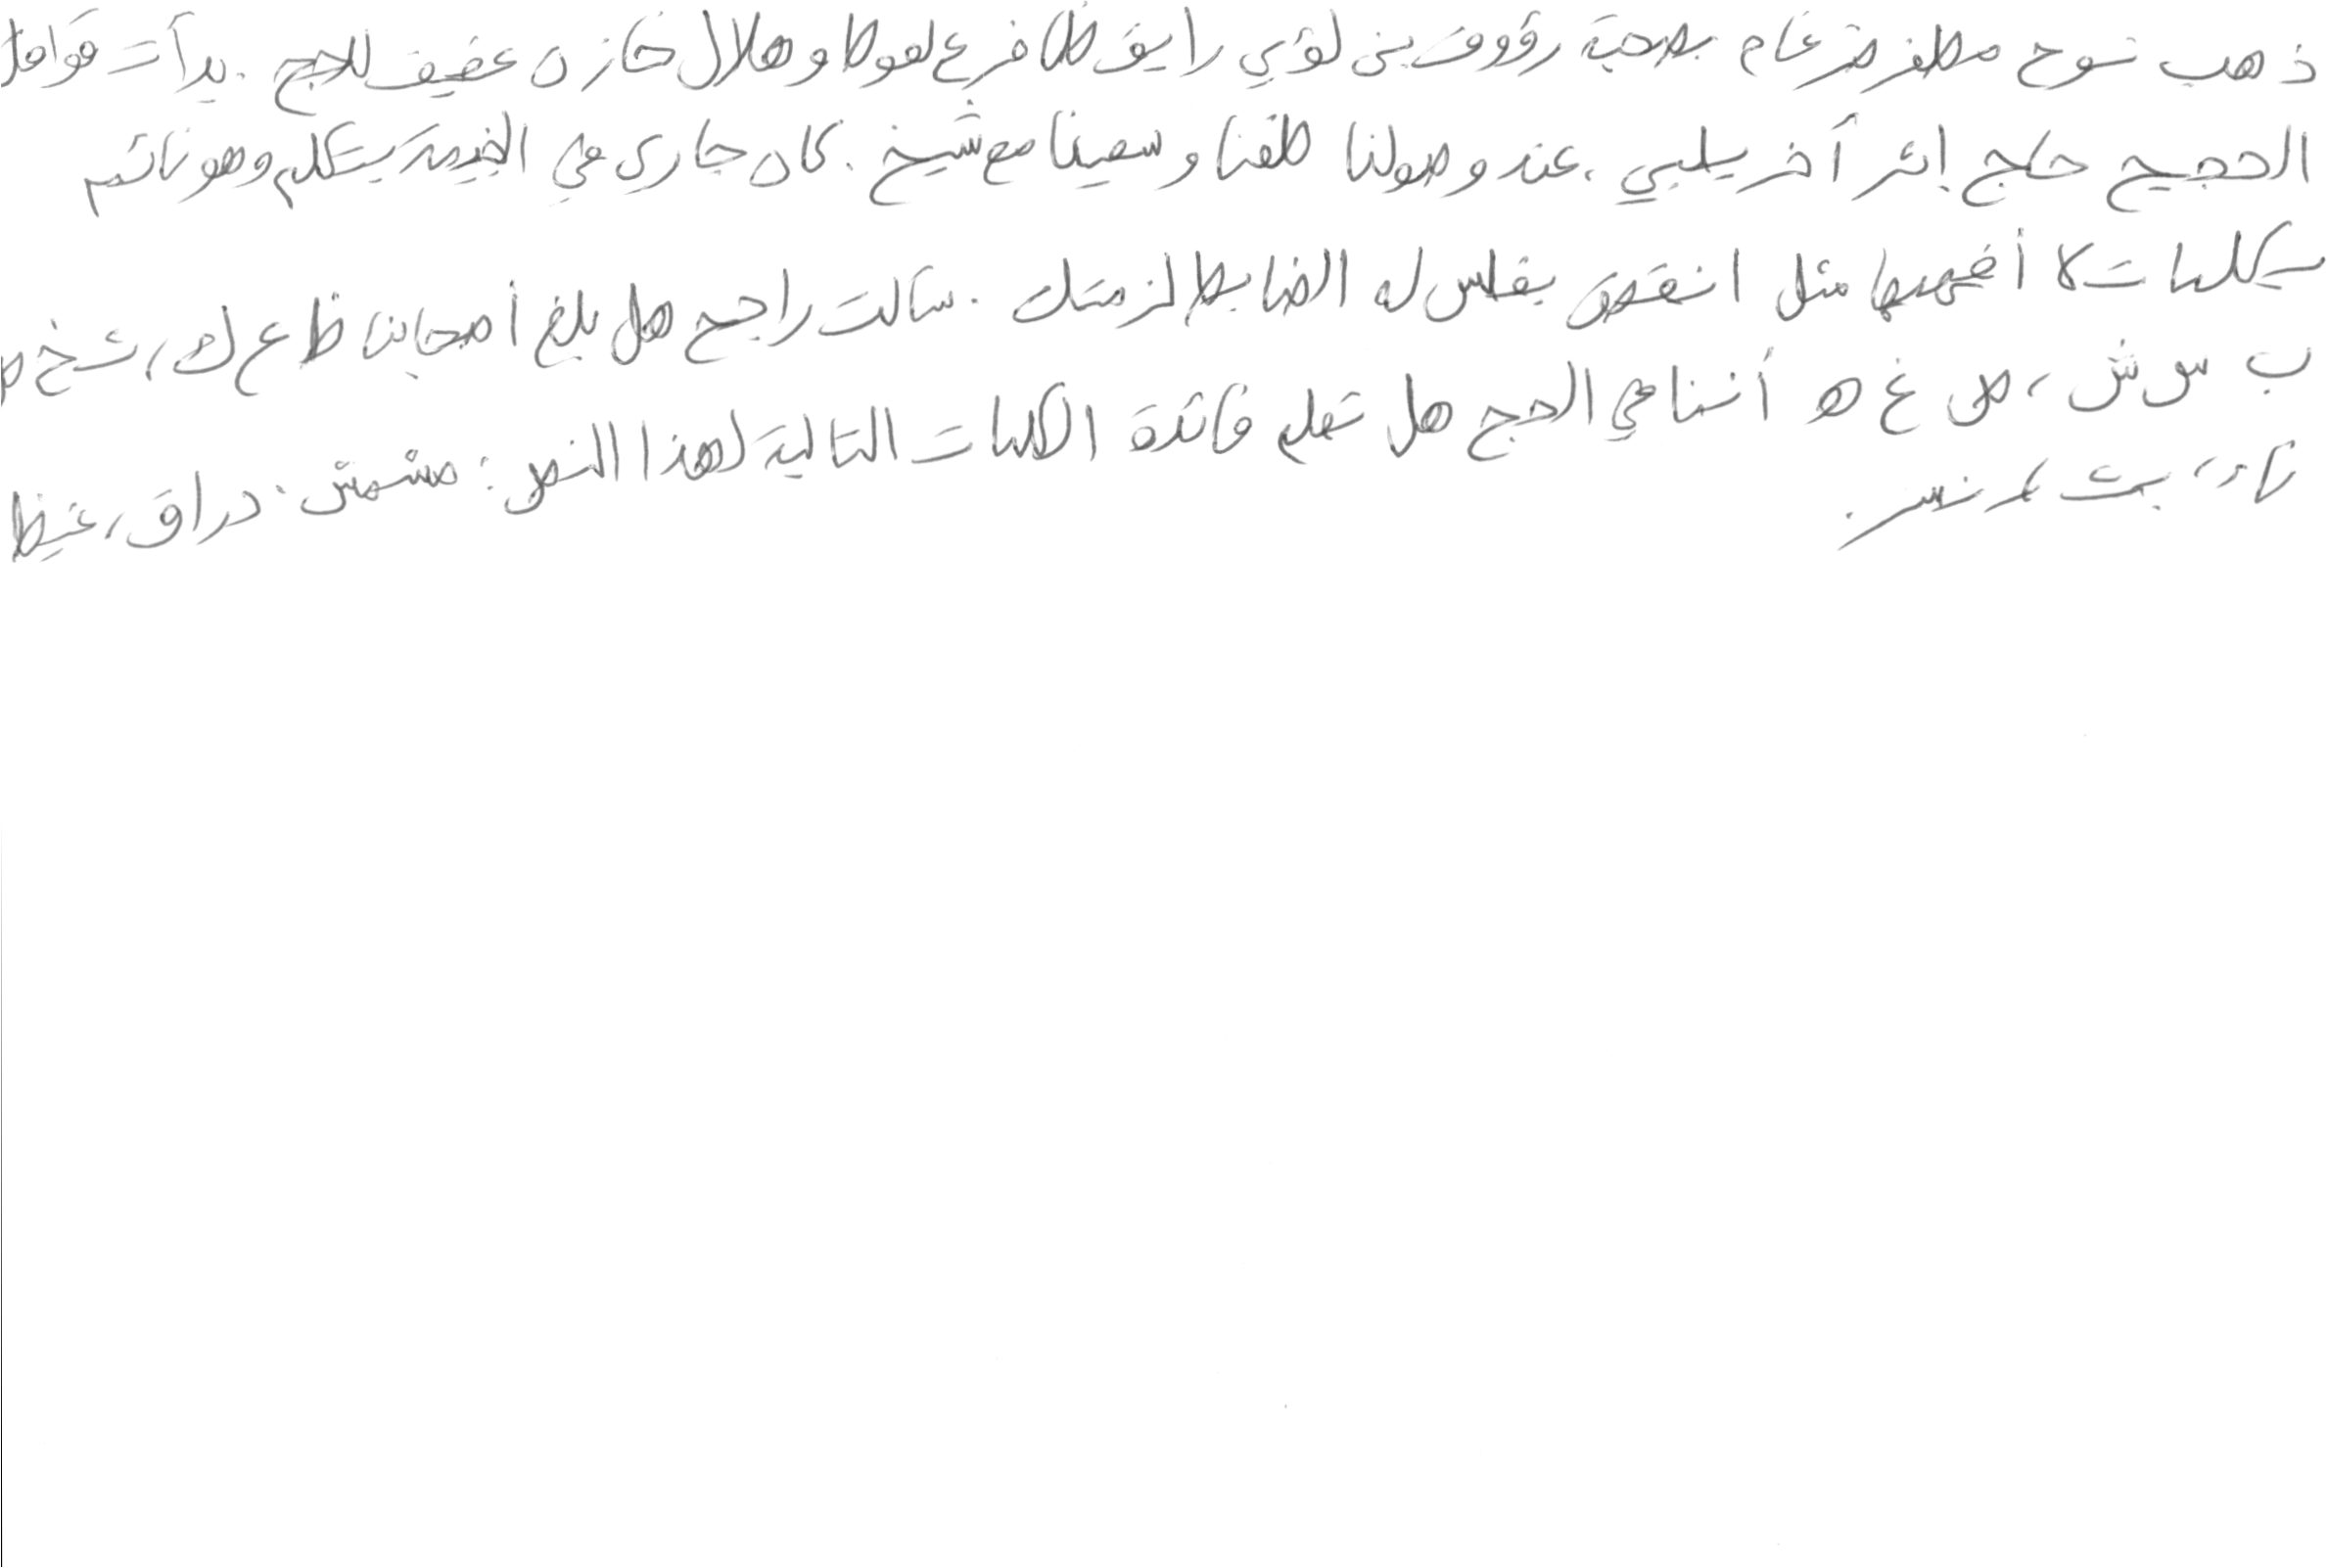 ذهب نوح مظفر ضرغام بصحبة رؤوف بن لؤي رايق ظافر علعوط و هلال خازن عفيف للحج . بدأت قوافل
الحجيج حاج إثر آخر يلبي ، عند وصولنا طفنا و سعينا مع شيخ . كان جاري في الخيمة يتكلم وهو نائم
بكلمات لا أفهمها مثل انقض يفلس له الضابط لزمتك . سألت راجح هل بلغ أصحابنا ظ ع ك ، ش خ م
ب س ش ، ص غ ه أننا في الحج هل تعلم فائدة الكلمات التالية لهذا النص : مشمش ، دراق ، غيظ